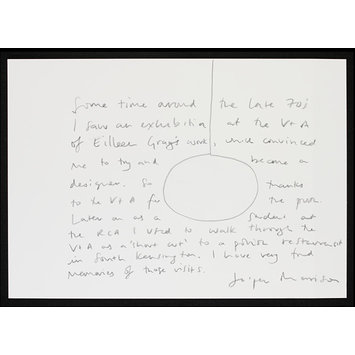 Some time around the late 70s
I saw an exhibition at the V+A
of Eilleen Gray's work, which convinced
me to try and become a
designer. So thanks
to the V+A for the push.
Later on as a student at
the RCA I used to walk through the
V+A as a 'short cut' to a polish restaurant
in South Kensington. I have very fond
memories of those visits.
Jasper Morrison